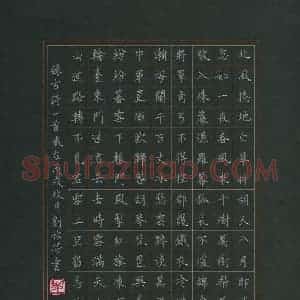 北風捲地白草折胡天八月即飛雪
忽如一夜春風來千樹萬樹梨花開
散入珠簾濕羅幕狐裘不暖錦衾薄
將軍角弓不得控都護鐵衣冷難著
瀚海闌干百丈冰愁雲慘淡萬里凝
中軍置酒飲歸客胡琴琵琶與羌笛
紛紛暮雪下轅門風掣紅旗凍不翻
輪臺東門送君去去時雪滿天山路
山迴路轉不見君雪上空留馬行處
Shufaziliao.com